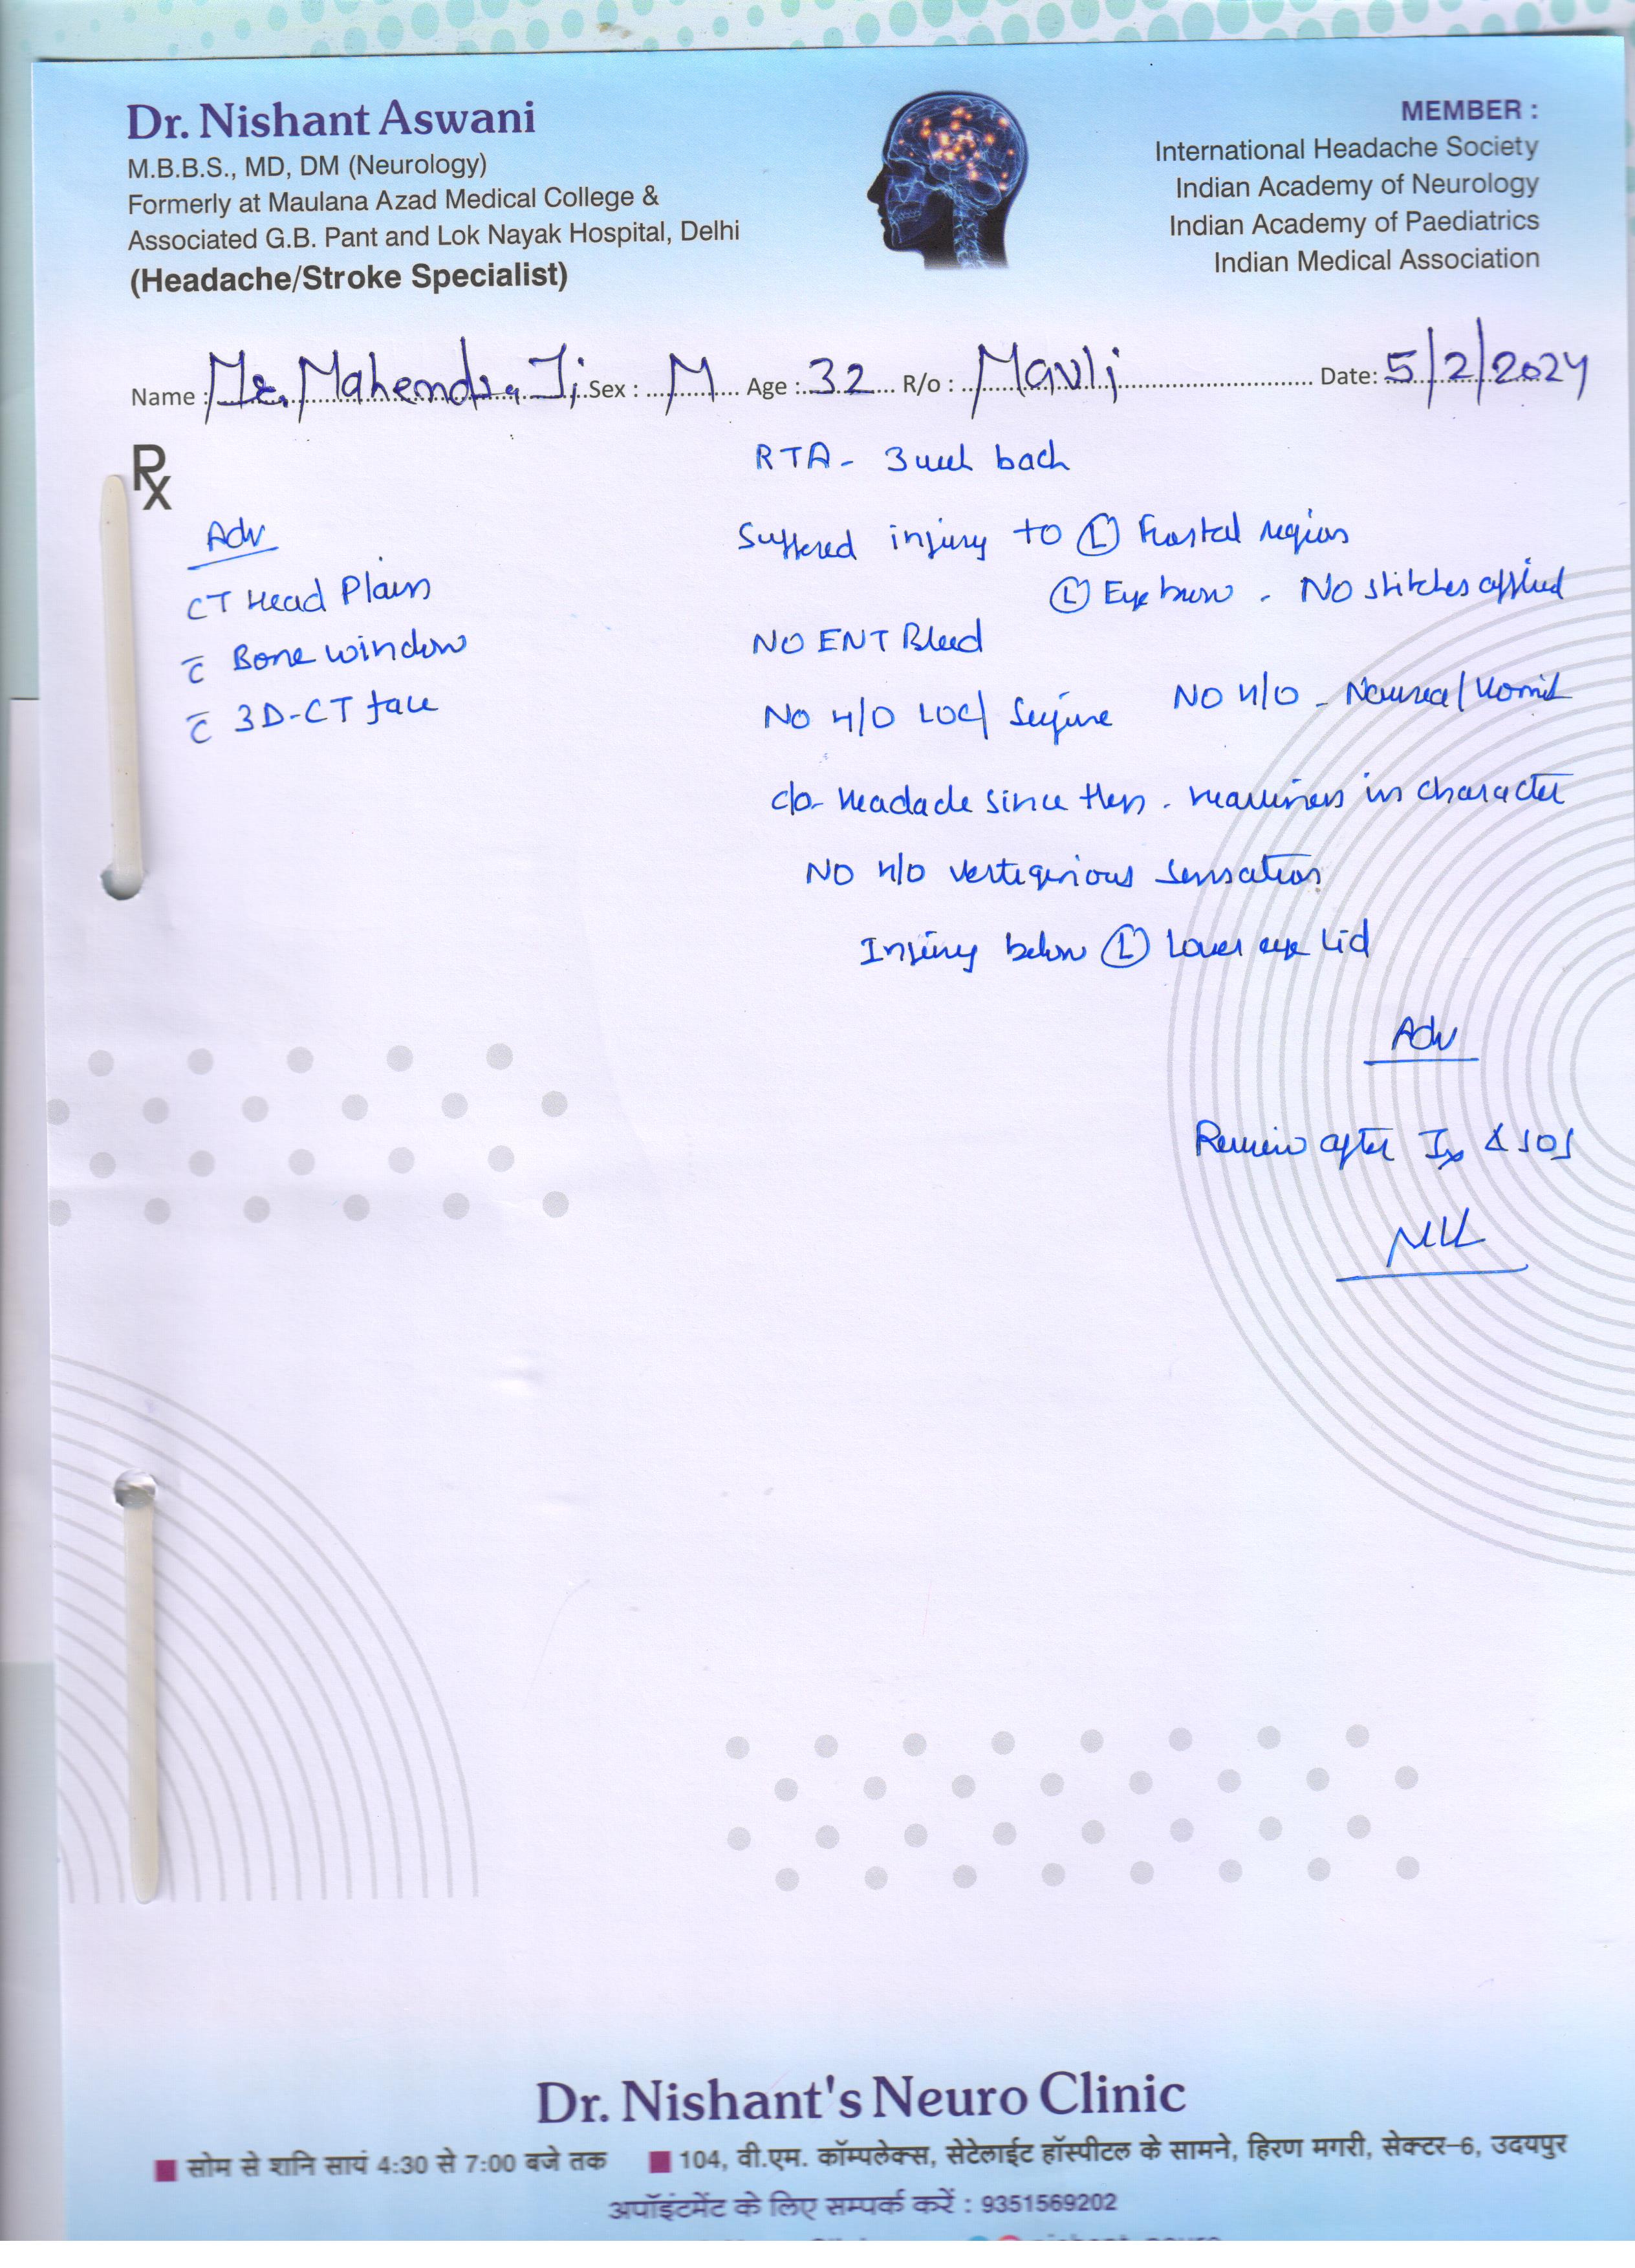 Dr. Nishant Aswani
M.B.B.S., MD, DM (Neurology)
Formerly at Maulana Azad Medical College &
Associated G.B. Pant and Lok Nayak Hospital, Delhi
(Headache/Stroke Specialist)
MEMBER :
International Headache Society
Indian Academy of Neurology
Indian Academy of Paediatrics
Indian Medical Association
Name : Mr. Mahendra Ji Sex : M Age : 32 R/o : Mavli Date: 5/2/2024
Rx
Adv
CT Head Plain
c̄ Bone window
c̄ 3D-CT face
RTA - 3 week back
Suffered injury to Ⓛ Frontal region
Ⓛ Eye brow - No stitches applied
NO ENT Bleed
No H/O LOC/ Seizure NO H/O - Nausea/Vomit
c/o- Headache since then - heaviness in character
NO H/O vertiginous sensation
Injury below Ⓛ Lower eye lid
Adv
Review after Ix & SOS
Dr. Nishant's Neuro Clinic
सोम से शनि सायं 4:30 से 7:00 बजे तक
104, वी.एम. कॉम्पलेक्स, सेटेलाईट हॉस्पीटल के सामने, हिरण मगरी, सेक्टर-6, उदयपुर
अपॉइंटमेंट के लिए सम्पर्क करें : 9351569202